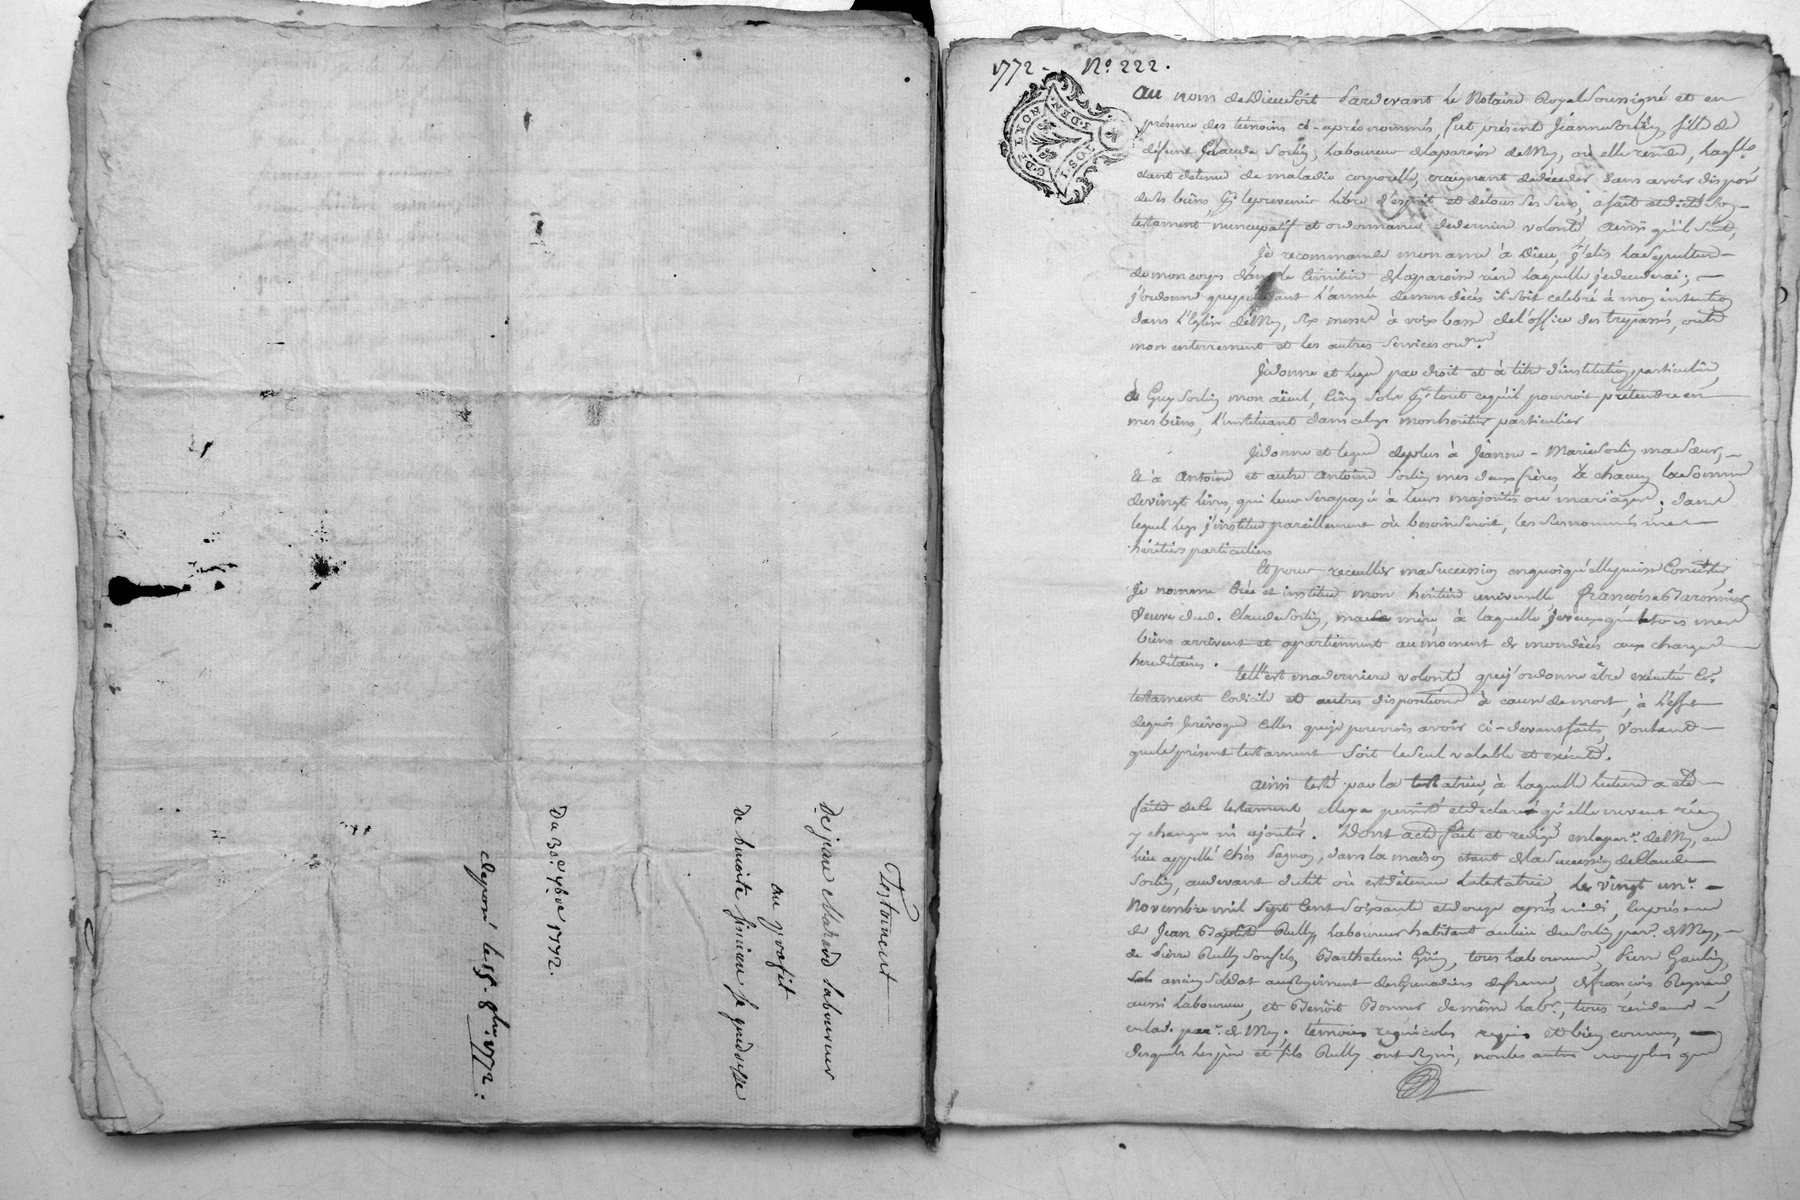 Testament
De jean Marie Chavand laboureur
au proffit
De benoite Siméan sa
Du 30e 7bre 1772.
déposé le 8bre 1772.
1772 - No. 222.
G. DE LYON
1. SOL
Au nom de Dieu soit Pardevant le Notaire Royal soussigné et en
présence des témoins ci-après nommés, fut présent Jeanne Sorlin, fille de
défunt Claude Sorlin, laboureur de la paroisse de où elle réside, laqlle
étant détenue de maladie corporelle, craignant de décéder sans avoir disposé
de ses biens, libre d'esprit et de tous ses sens, a fait et dicté son
testament nuncupatif et ordonnance de dernière volonté ainsi qu'il suit,
Je recommande mon ame à Dieu j'élis la sépulture
de mon corps dans le Cimitiere de la paroisse rière laquelle je décéderai;
j'ordonne que pendant l'année de mon décès il soit célébré à mon intention
dans l'Eglise de six messes à voix basse de l'office des trépassés, outre
mon enterrement et les autres services
Je donne et legue par droit et à titre d'institution particulière,
à Guy Sorlin mon aïeul, Cinq sols pr. tout ce qu'il pourroit prétendre en
mes biens, l'instituant dans celuy mon héritier particulier
Je donne et legue de plus à Jeanne-Marie Sorlin ma sœur,
Et à Antoine et autre Antoine Sorlin mes deux frères, à chacun la somme
de vingt livres, qui leur sera payée à leurs majorités ou mariages; dans
lequel legs j'institue pareillement où besoin seroit, les susnommés mes
héritiers particuliers
Et pour recueillir ma succession en quoi qu'elle puisse Consister,
Je nomme Crée et institue mon héritière universelle françoise Baronnier
Veuve dud. Claude Sorlin, ma mère, à laquelle je veux que tous mes
biens arrivent et apartiennent au moment de mon décès aux charges
héréditaires. Telle est ma dernière volonté que j'ordonne être exécutée Co.
testament Codicile et autres dispositions à cause de mort, à l'effet
de quoi je révoque Celles que je pourrois avoir ci-devant faites, Voulant
que le présent testament soit le seul valable et exécuté.
Ainsi testé par la testatrice, à laquelle lecture a été
faite de ce testament elle y a persisté et déclaré qu'elle ne veut rien
y changer ni ajouter. Dont acte fait et rédigé en la par. de au
lieu appellé Chés dans la maison étant de la succession de Claude
Sorlin, au devant du lit où est détenue la testatrice, le vingt un.
Novembre mil sept Cent soixante et douze après midi, En présence
de Jean Baptiste Rully laboureur habitant au lieu de Sorlin par. de
de Pierre Rully son fils, Barthelemi tous laboureurs, Pierre Gaulin,
ancien soldat au Régiment des Grenadiers de france, de françois Reynard,
aussi laboureur, et Benoit Bonnet de même lab., tous résidans
en lad. par. de témoins regnicoles requis et bien connus,
desquels les père et fils Rully ont signé, non les autres non plus que